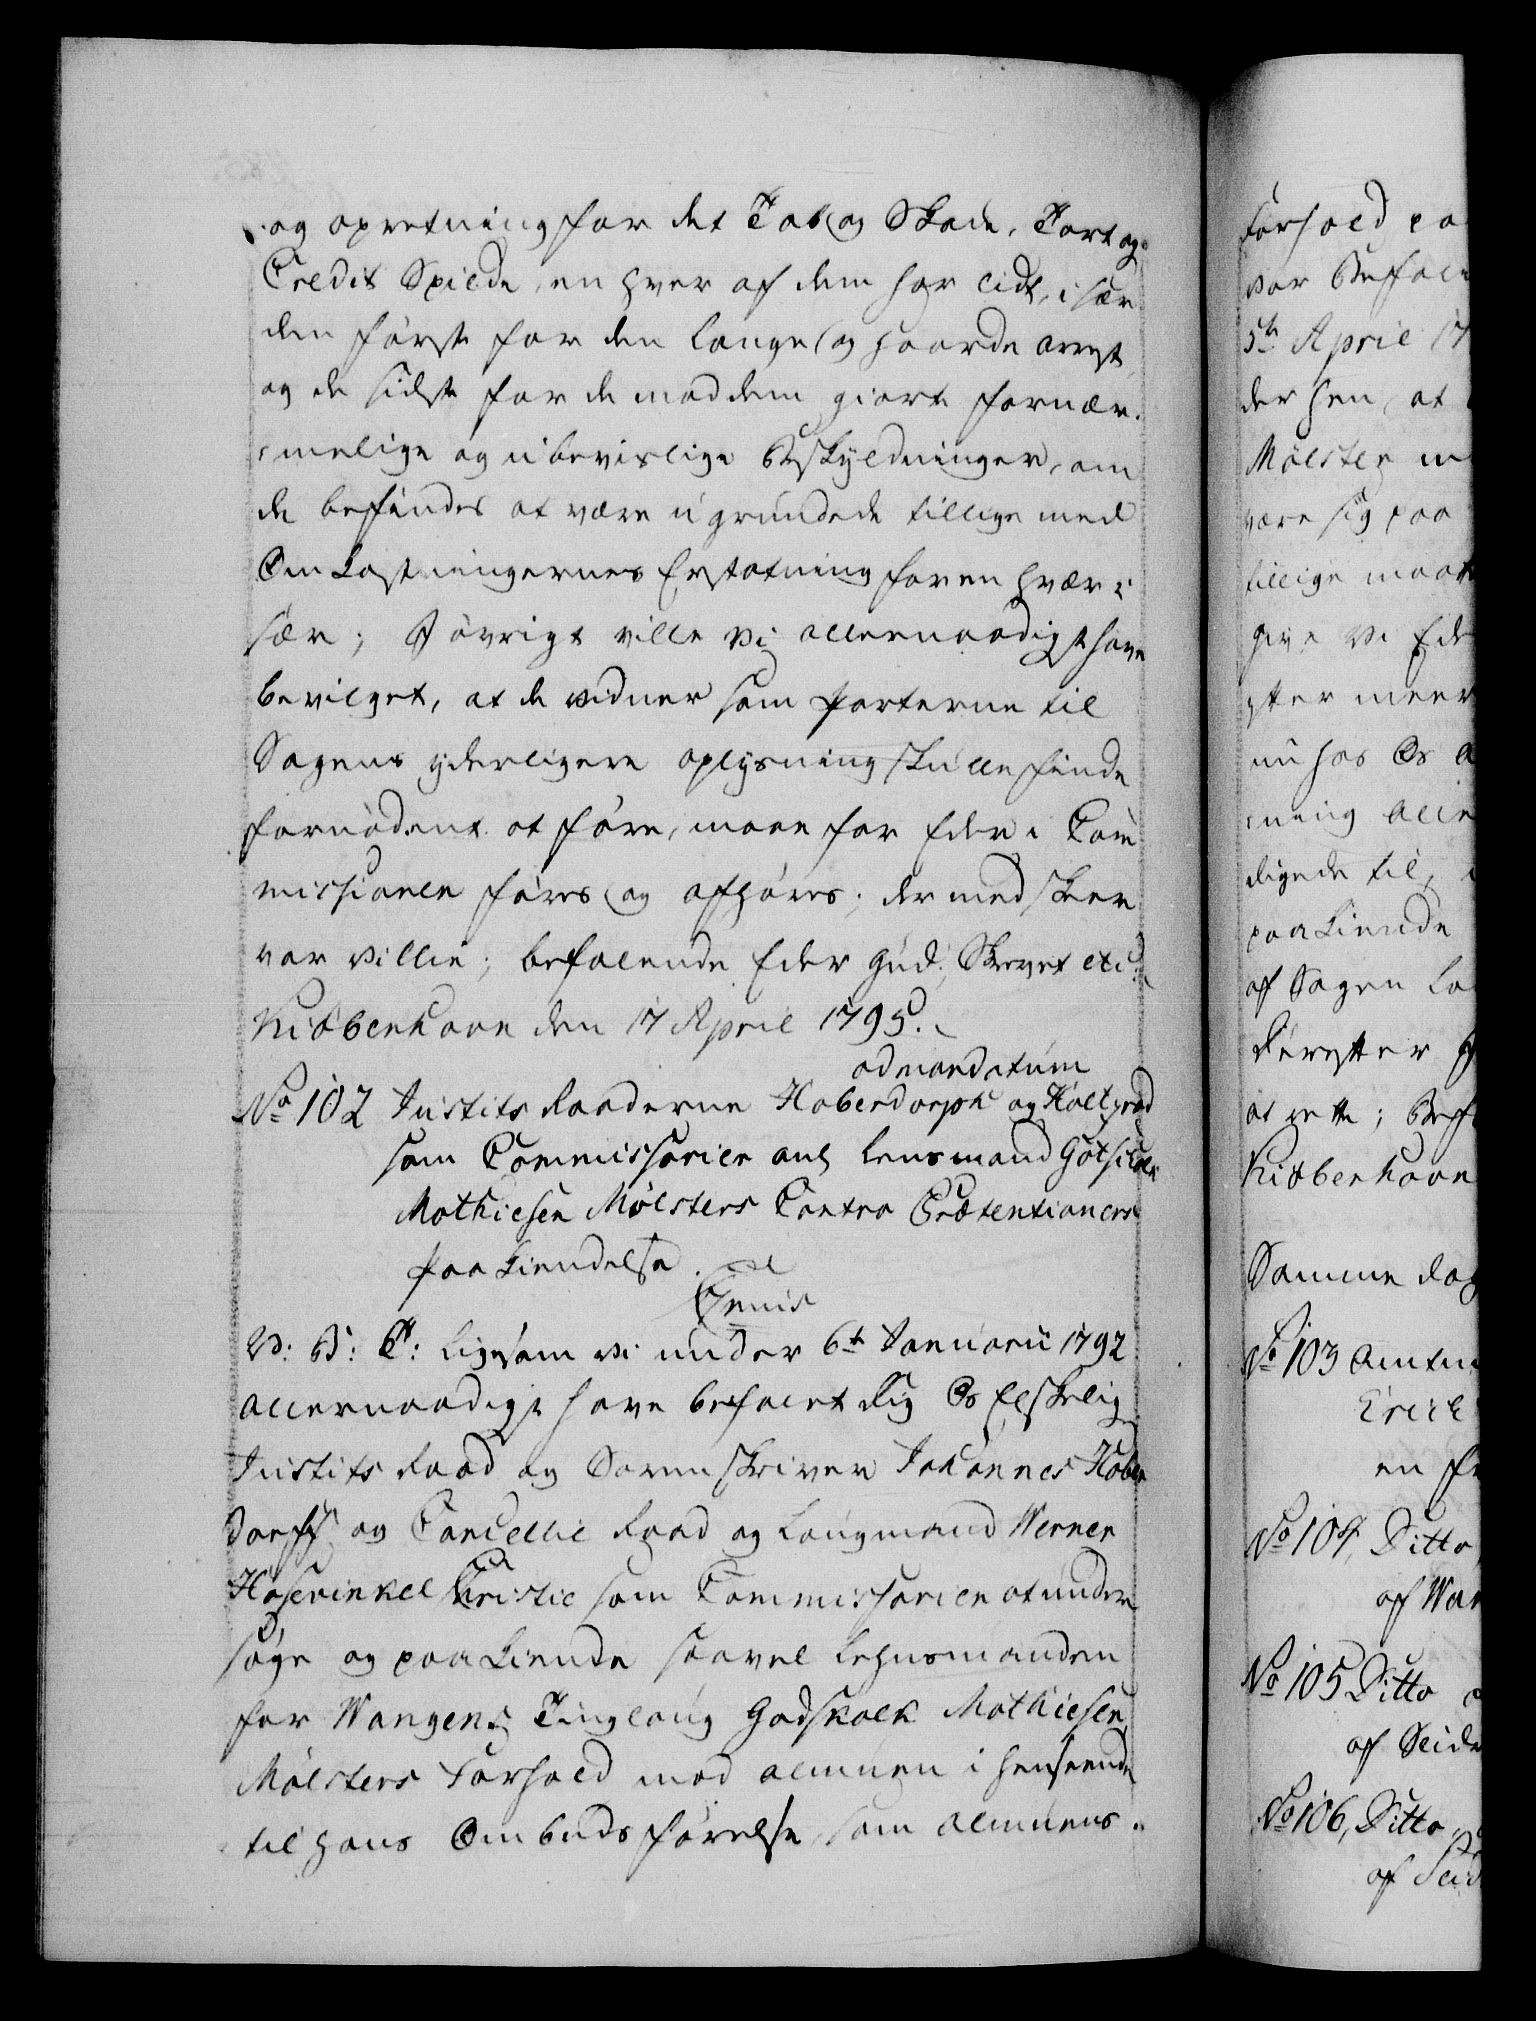 og opretning for det Tab og Skade, Tort og
Credit Spilde, en hver af dem har lidt, i sær
den første for den lange og haarde arrest,
og de sidste for de mod dem giorte fornær-
melige og ubevislige Beskyldninger, om
de befindes at være ugrundede tillige med
Omkostningernes Erstatning for en hver i
sær; I øvrigt ville Vi allernaadigst have
bevilget, at de vidner som Parterne til
Sagens yderligere oplysning skulle finde
fornødent at føre, maae for Eder i Com-
missionen føres og afhøres; der med skeer
vor villie; befalende Eder Gud; Skrevet etc:
Kiøbenhavn den 17 April 1795.
ad mandatum
No 102 Justits Raaderne Haberdorph og Koltzrod
som Commissarier ang Lensmand Gotskalk
Mathiesen Mølsters Contra Prætentioners
Paakiendelse.
V: G: T: Ligesom vi under 6te Januarii 1792
allernaadigst have befalet dig Os Elskelig
Justits Raad og Sorenskriver Johannes Haber
dorff og Cancellie Raad og Laugmand Werner
Hosevinkel Christie som Commissarier at under
søge og paakiende saavel Lehnsmanden
for Wangens Tinglaug Godskalk Mathiesen
Mølsters Forhold mod almuen i henseende
til hans Ombuds førelse, som almuens
Forhold
vor Befal
5te April 17
der hen, at
Mølster
være sig paa
tillige
give Vi Ed
efter meer
nu hos Os
ning alle
digede til,
paakiende
af Sagen
Derefter
at rette; Bef
Kiøbenhavn
Samme dag
No 103 Amtm
Erick
en
No 104, Ditto
af Wan
No 105 Ditto
af Seide
No 106, Ditto
af Seid